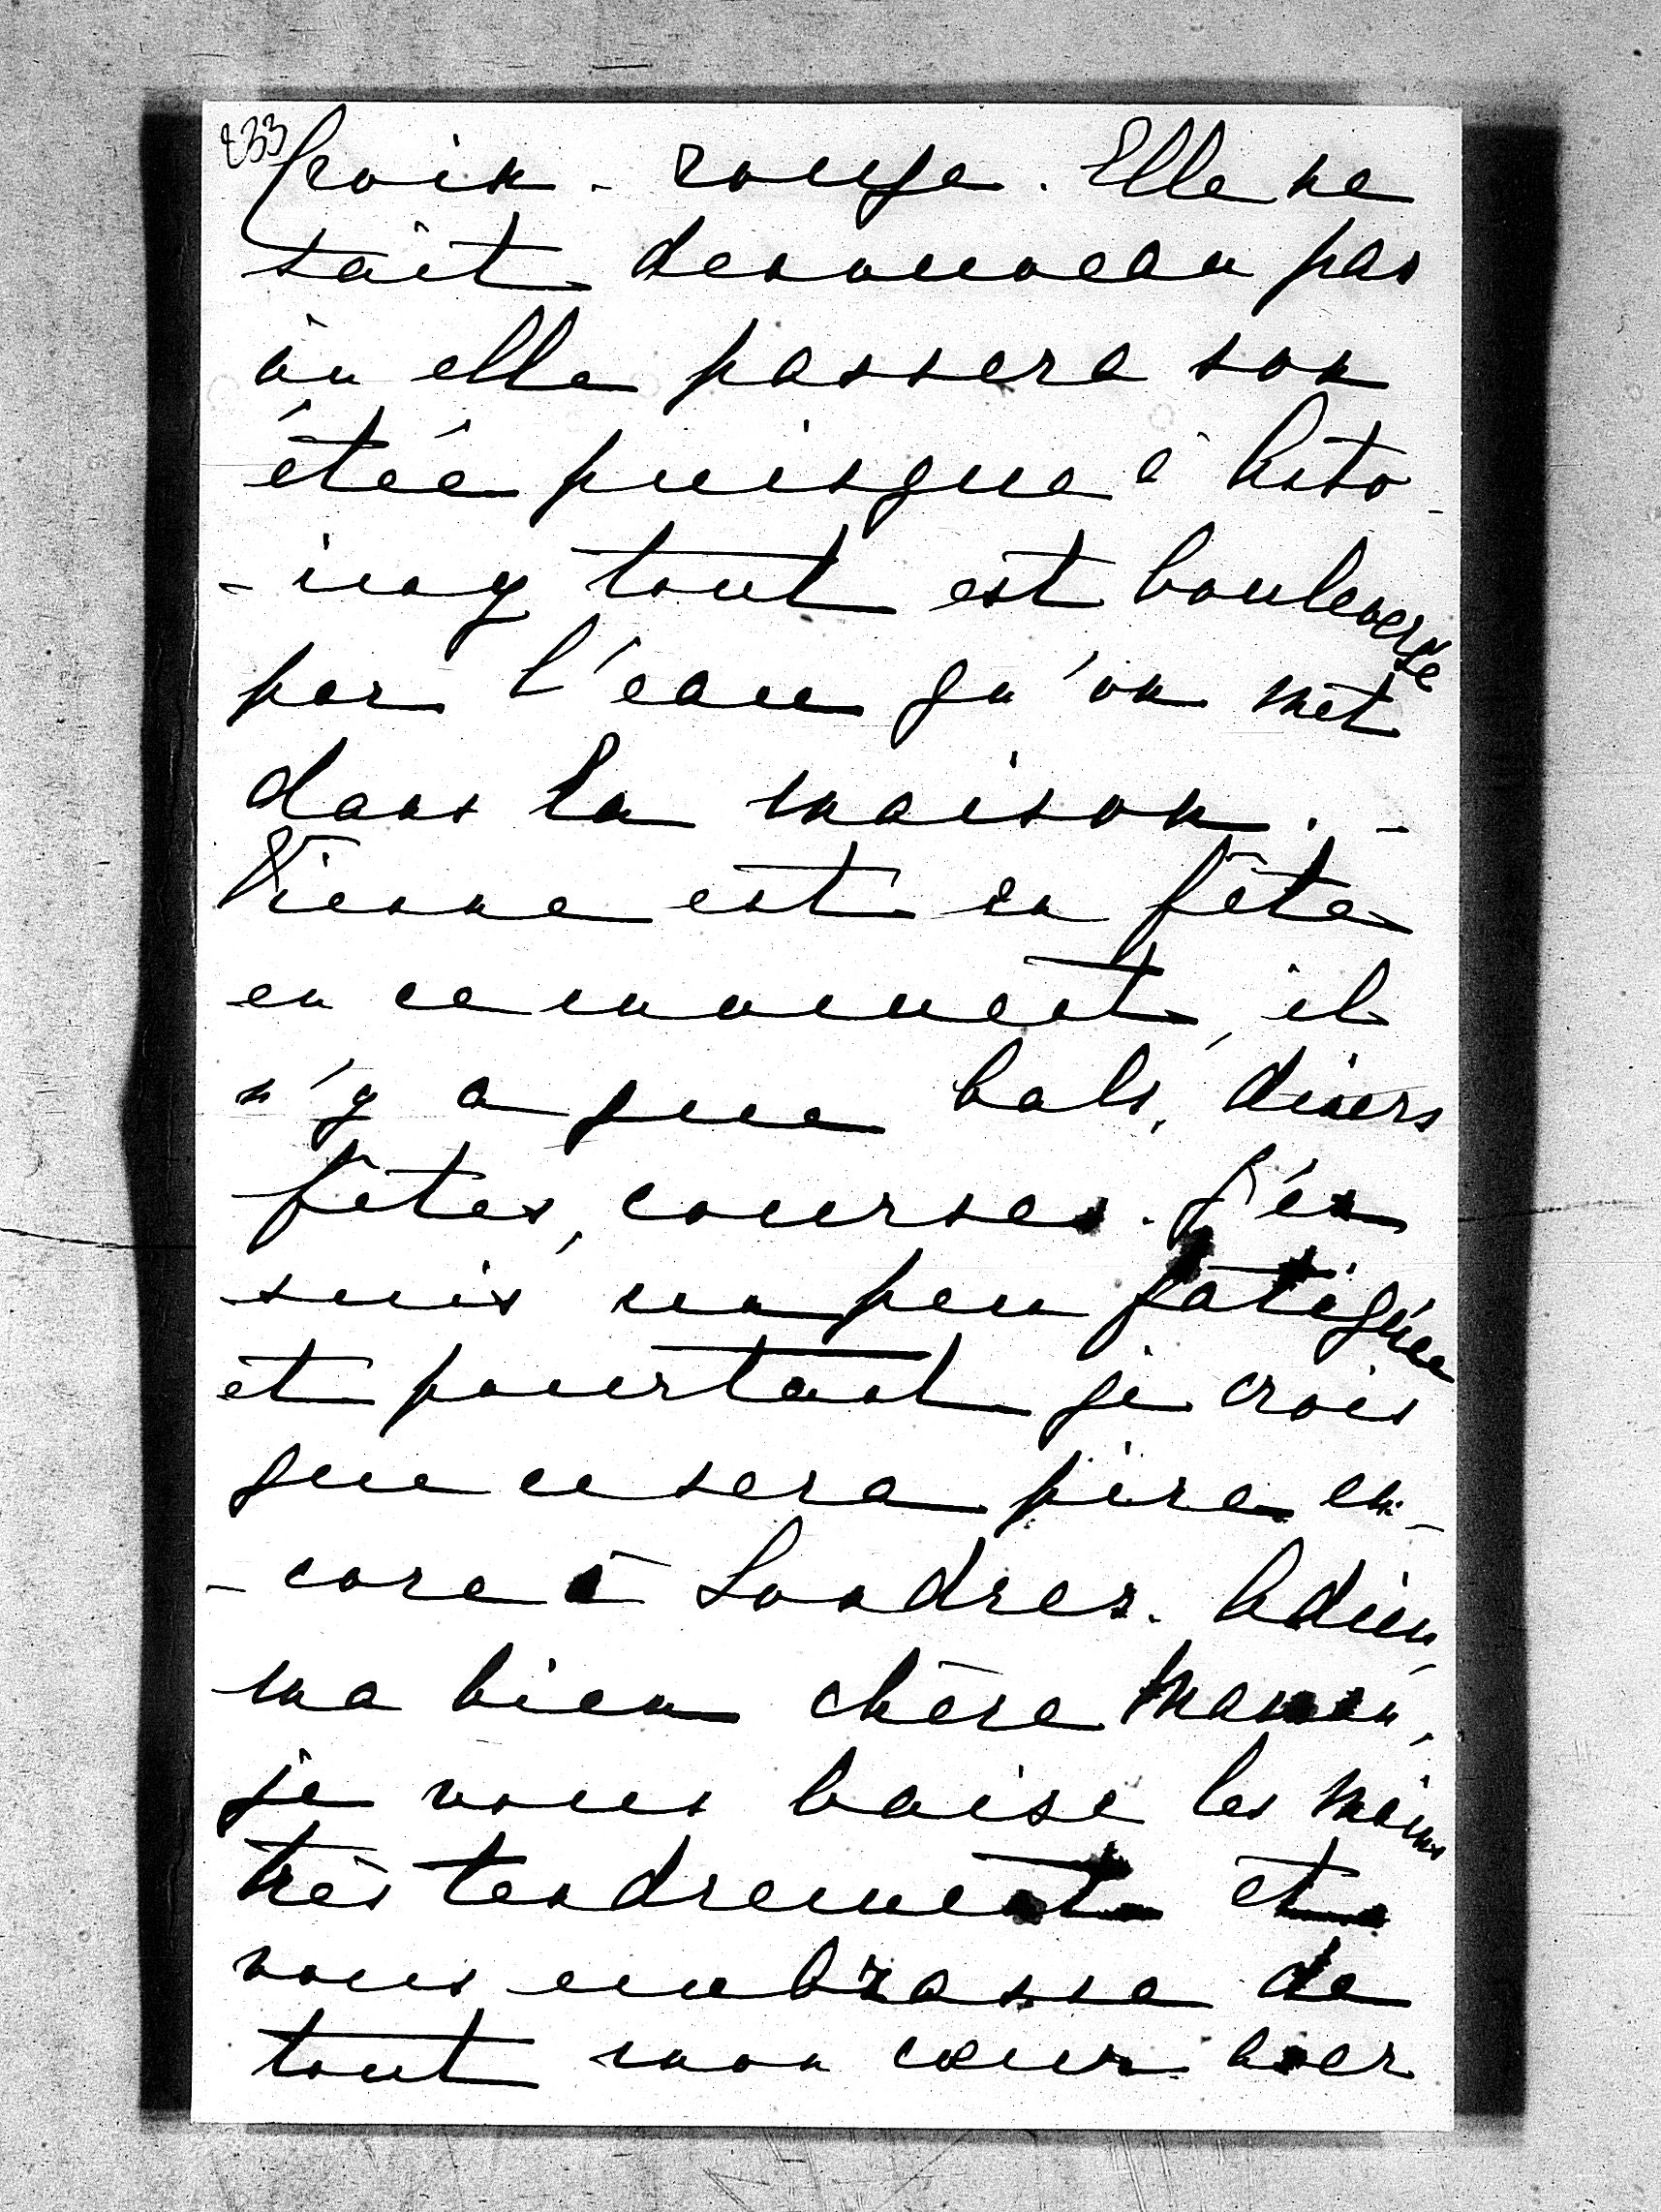 833
Croix-rouge. Elle ne
sait denouveau pas
où elle passera son
étée puisque à Roto-
-inoy tout est bouleversé
par l'eau qu'on met
dans la maison. -
Vienne est en fête
en ce moment, il
n'y a que bals, diners
fêtes, courses. J'en
suis un peu fatiguée
et pourtant je crois
que ce sera pire en-
-core à Londres. Adieu,
ma bien chère Maman,
je vous baise les mains
très tendrement et
vous embrasse de
tout mon cœur